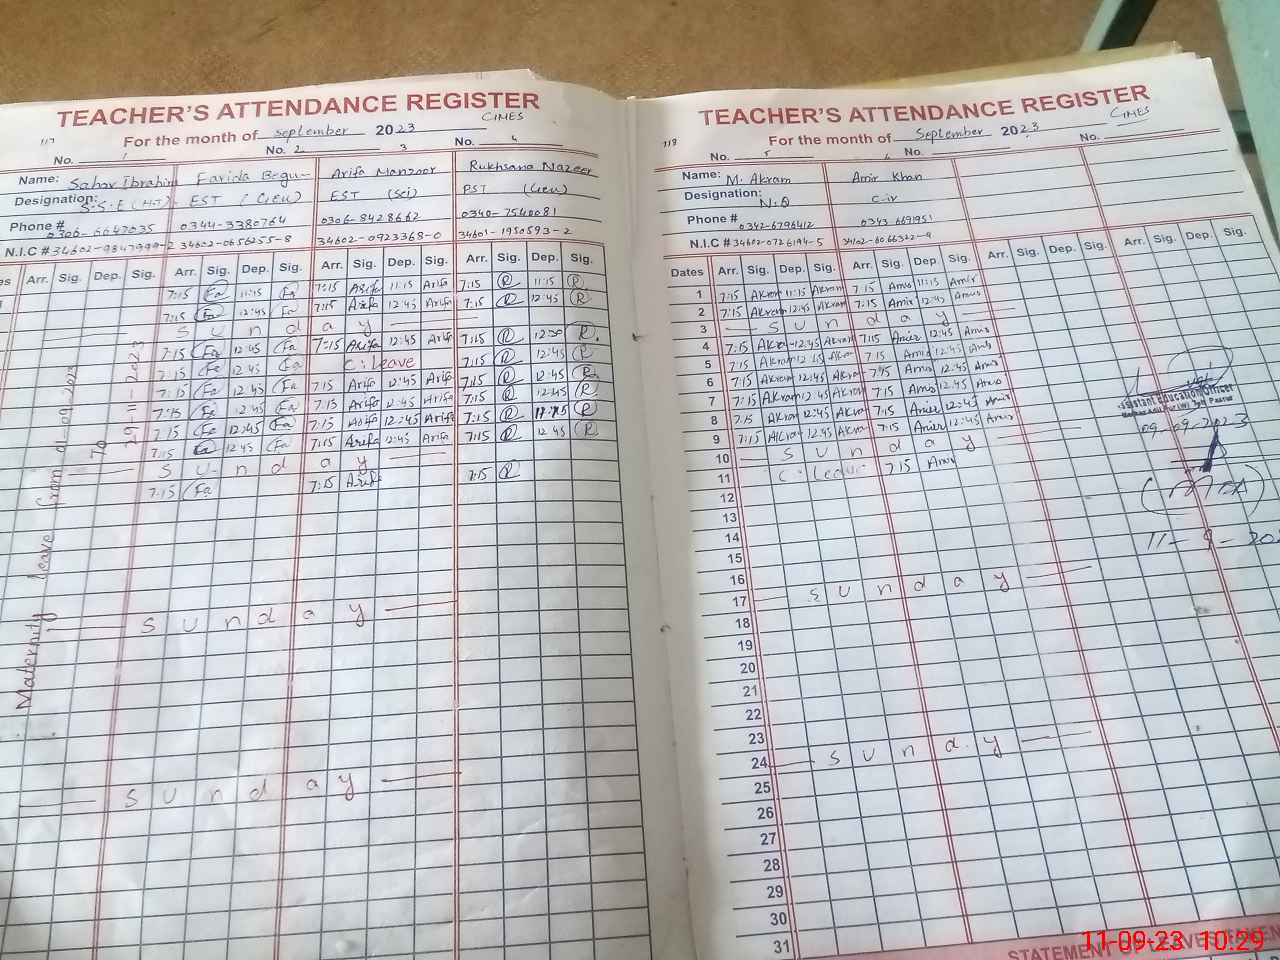 TEACHER'S ATTENDANCE REGISTER
CIMES
117
For the month of September 2023
No. 1 No. 2 3 No. 4
Name: Sahar Ibrahim Farida Begu- Arifa Manzoor Rukhsana Nazeer
Designation: S.S.E (H.T) EST (Gen) EST (Sci) PST (Gen)
Phone # 0306-6647035 0344-3380764 0306-8428662 0340-7540081
N.I.C # 34602-9847999-2 34602-0656255-8 34602-0923368-0 34601-1950593-2
Arr. Sig. Dep. Sig. Arr. Sig. Dep. Sig. Arr. Sig. Dep. Sig. Arr. Sig. Dep. Sig.
7:15 Fa 11:15 Fa 7:15 Arifa 11:15 Arifa 7:15 R 11:15 R
7:15 Fa 12:45 Fa 7:15 Arifa 12:45 Arifa 7:15 R 12:45 R
Sunday
7:15 Fa 12:45 Fa 7:15 Arifa 12:45 Arifa 7:15 R R
7:15 Fa 12:45 Fa C:leave 7:15 R 12:45 R
7:15 Fa 12:45 Fa 7:15 Arifa 12:45 Arifa 7:15 R 12:45 R
7:15 Fa 12:45 Fa 7:15 Arifa 12:45 Arifa 7:15 R 12:45 R
7:15 Fa 12:45 Fa 7:15 Arifa 12:45 Arifa 7:15 R R
7:15 Fa 12:45 Fa 7:15 Arifa 12:45 Arifa 7:15 R 12:45 R
Sunday
7:15 Fa 7:15 Arifa 7:15 R
Sunday
Sunday
Maternity leave from 01-09-2023
To
29-11-2023
TEACHER'S ATTENDANCE REGISTER
CIMES
118
For the month of September 2023
No. 5 6 No. No.
Name: M. Akram Amir Khan
Designation: N.Q C-iv
Phone # 0342-6796412 0343-6691951
N.I.C # 34602-0726194-5 34102-6066322-9
Dates Arr. Sig. Dep. Sig. Arr. Sig. Dep. Sig. Arr. Sig. Dep. Sig. Arr. Sig. Dep. Sig.
1 7:15 Akram 11:15 Akram 7:15 Amir 11:15 Amir
2 7:15 Akram 12:45 Akram 7:15 Amir 12:45 Amir
3 Sunday
4 7:15 Akram 12:45 Akram 7:15 Amir 12:45 Amir
5 7:15 Akram 12:45 Akram 7:15 Amir 12:45 Amir
6 7:15 Akram 12:45 Akram 7:15 Amir 12:45 Amir
7 7:15 Akram 12:45 Akram 7:15 Amir 12:45 Amir
8 7:15 Akram 12:45 Akram 7:15 Amir 12:45 Amir
9 7:15 Akram 12:45 Akram 7:15 Amir 12:45 Amir
10 Sunday
11 C:Leave 7:15 Amir
12
13
14
15
16
17 Sunday
18
19
20
21
22
23
24 Sunday
25
26
27
28
29
30
31
Assistant Education Officer
09-09-2023
(MEA)
11-9-202
STATEMENT OF LEAVES
11-09-23 10:29